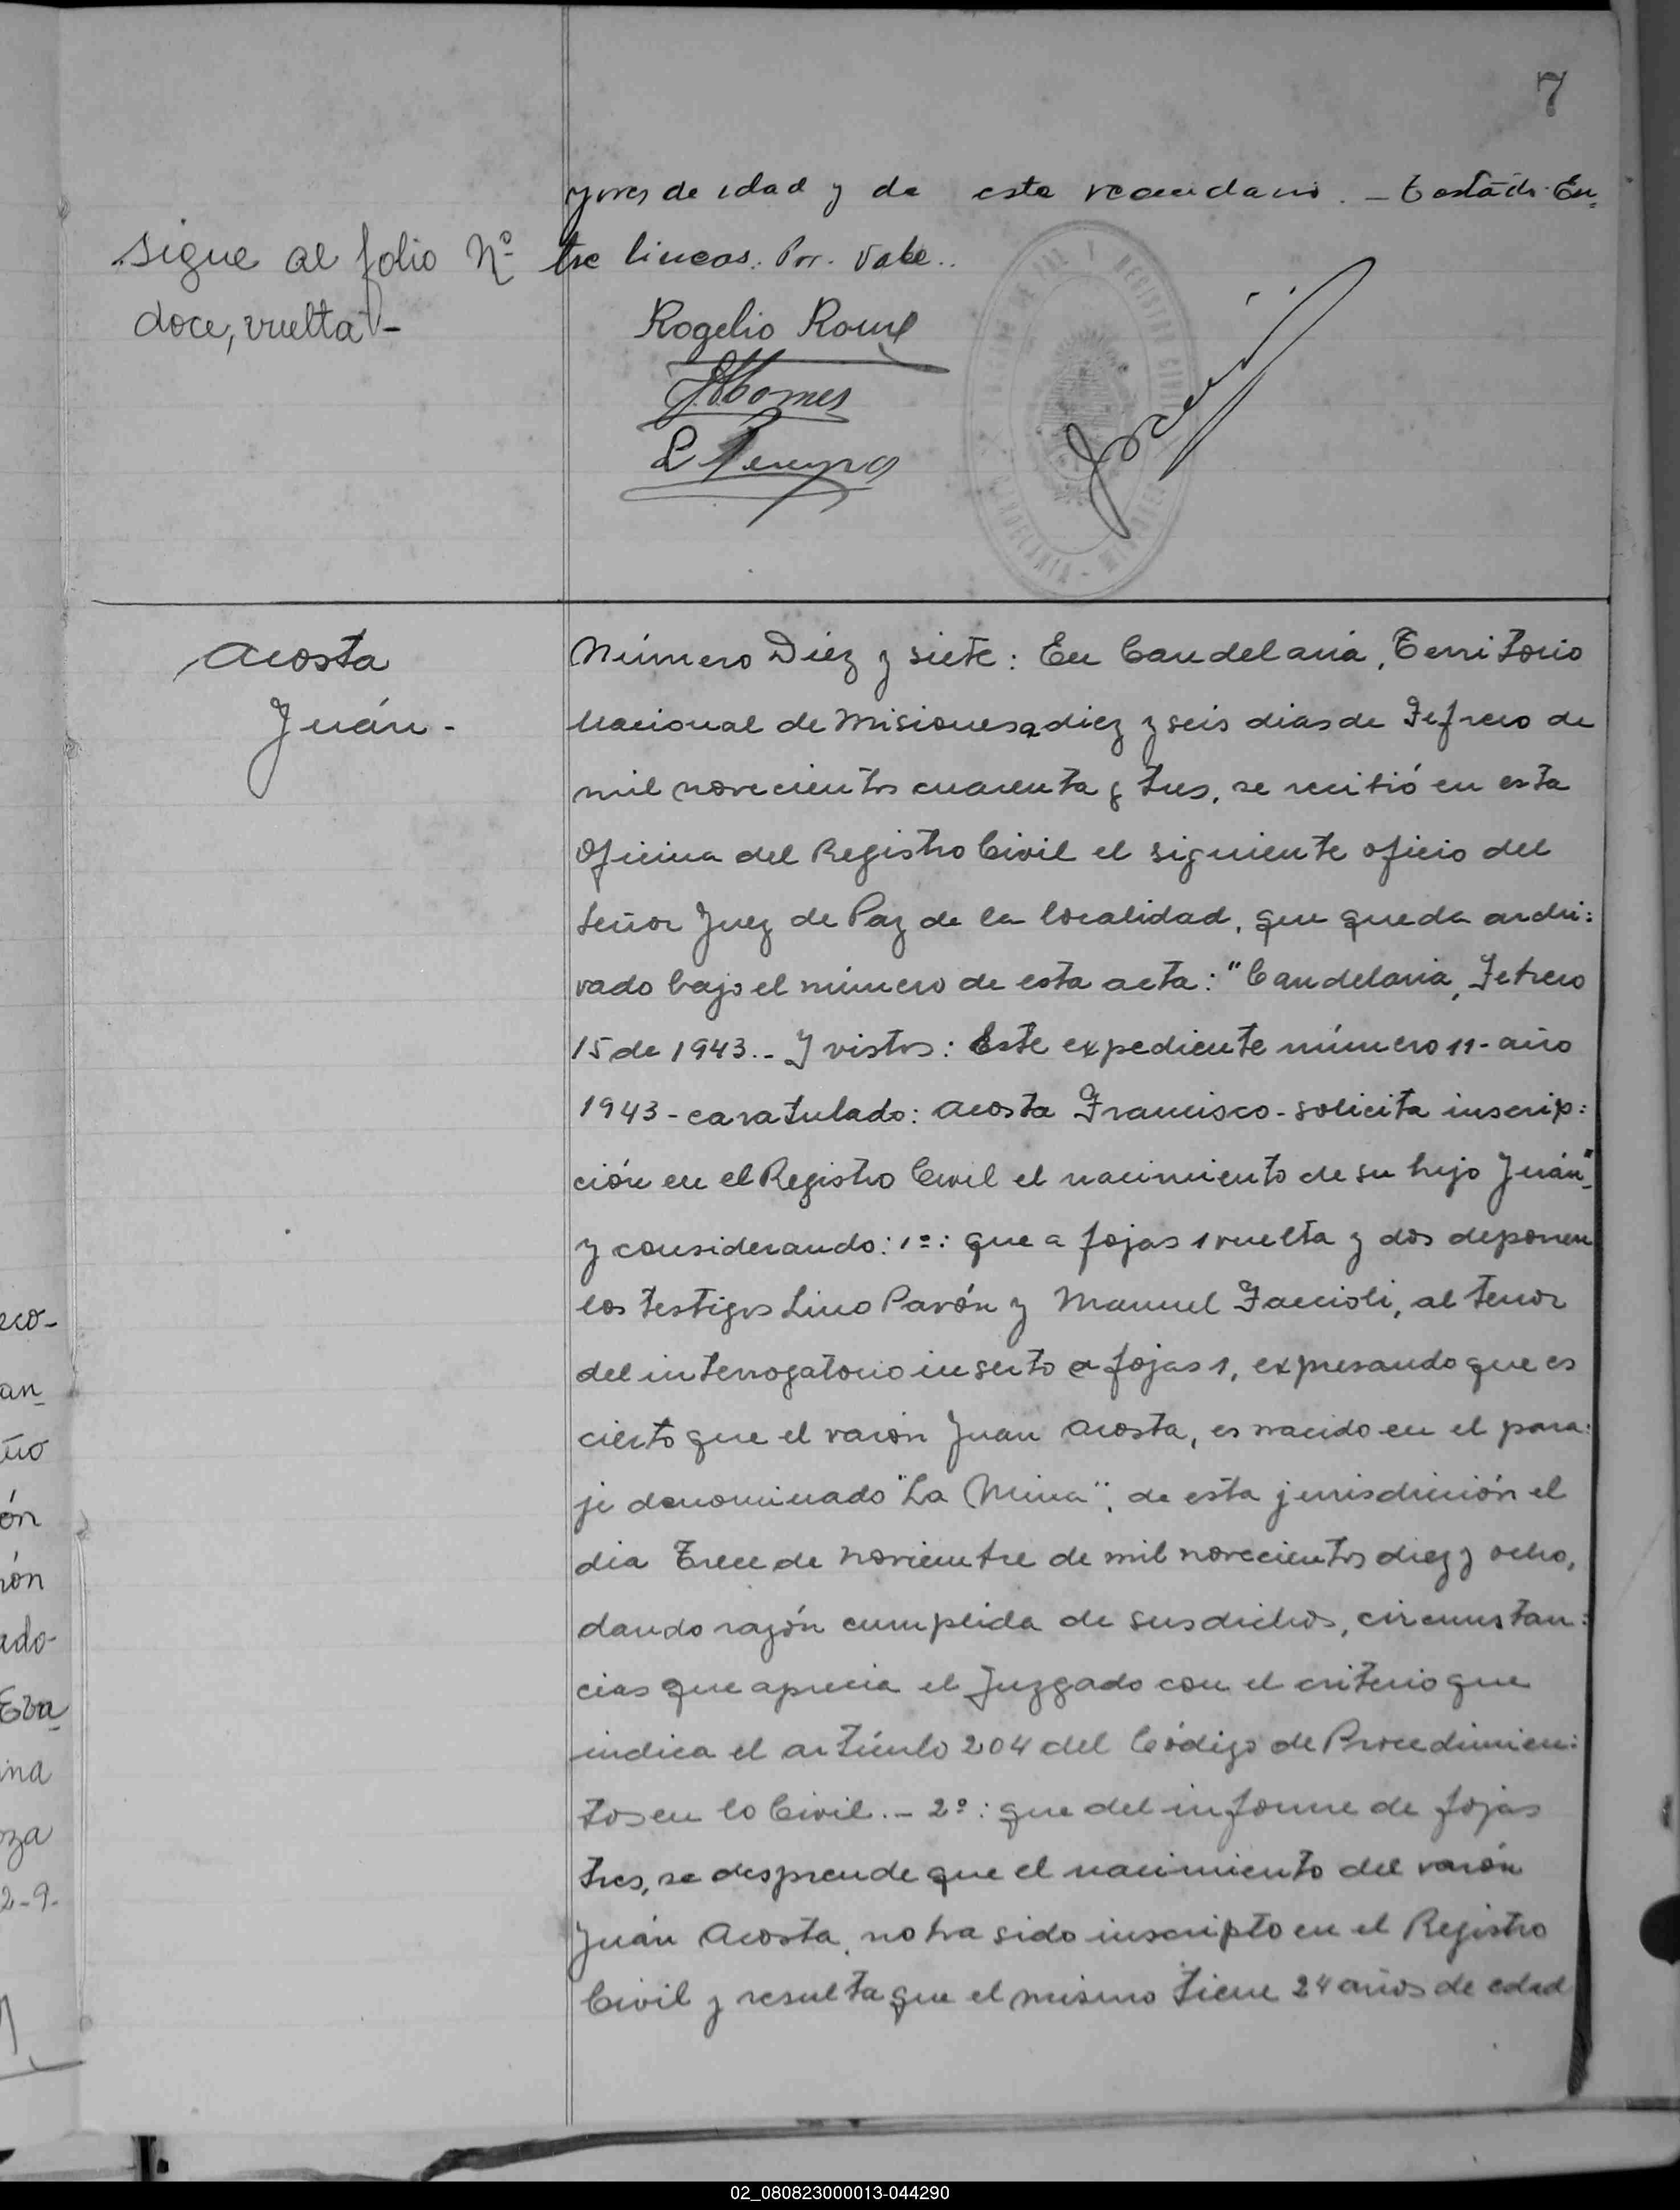 7
yores de edad y de este vecindario. - Testado: En=
tre lineas: Por. Vale..
Sigue al folio Nº
doce, vuelta -
Rogelio
acosta
Juán.-
Número Diez y siete: En Candelaria, Territorio
Nacional de Misiones a diez y seis dias de Febrero de
mil novecientos cuarenta y tres, se recibió en esta
Oficina del Registro Civil el siguiente oficio del
Señor Juez de Paz de la localidad, que queda archi=
vado bajo el número de esta acta: "Candelaria, Febrero
15 de 1943.- Y vistos: Este expediente número 11-año
1943-caratulado: Acosta Francisco-solicita inscrip=
ción en el Registro Civil el nacimiento de su hijo Juán"-
y considerando: 1º: que a fojas 1 vuelta y dos deponen
los testigos Lino Pavón y Manuel Faccioli, al tenor
del interrogatorio inserto a fojas 1, expresando que es
cierto que el varón Juan Acosta, es nacido en el para=
je denominado "La Mina", de esta jurisdición el
dia Trece de noviembre de mil novecientos diez y ocho,
dando razón cumplida de sus dichos, circunstan=
cias que aprecia el Juzgado con el criterio que
indica el artículo 204 del Código de Procedimien=
tos en lo Civil.- 2º: que del informe de fojas
tres, se desprende que el nacimiento del varón
Juán Acosta, no ha sido inscripto en el Registro
Civil y resulta que el mismo tiene 24 años de edad
eco-
an
ño
ón
ión
ado-
Eva
ina
oza
2-9-
02_080823000013-044290